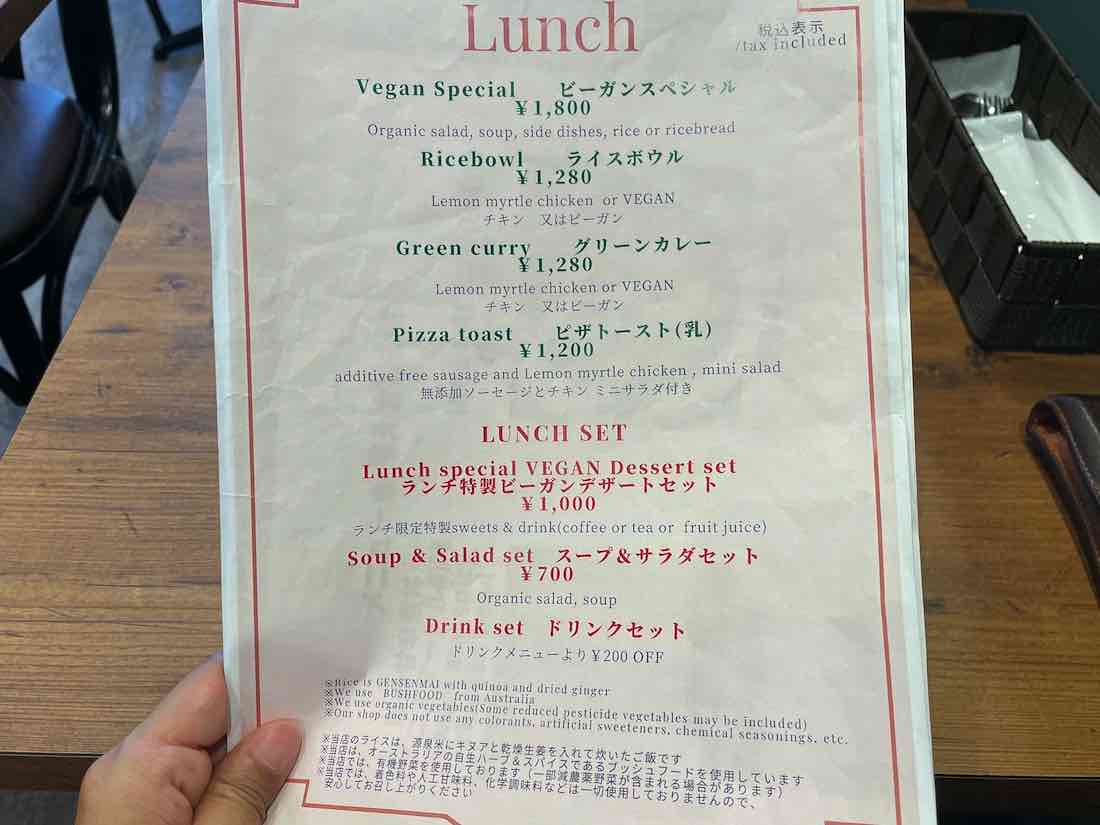 Lunch
税込表示
/tax included
Vegan Special ビーガンスペシャル
¥1,800
Organic salad, soup, side dishes, rice or ricebread
Ricebowl ライスボウル
¥1,280
Lemon myrtle chicken or VEGAN
チキン 又はビーガン
Green curry グリーンカレー
¥1,280
Lemon myrtle chicken or VEGAN
チキン 又はビーガン
Pizza toast ピザトースト(乳)
¥1,200
additive free sausage and Lemon myrtle chicken , mini salad
無添加ソーセージとチキン ミニサラダ付き
LUNCH SET
Lunch special VEGAN Dessert set
ランチ特製ビーガンデザートセット
¥1,000
ランチ限定特製sweets & drink(coffee or tea or fruit juice)
Soup & Salad set スープ&サラダセット
¥700
Organic salad, soup
Drink set ドリンクセット
ドリンクメニューより¥200 OFF
※Rice is GENSENMAI with quinoa and dried ginger
※We use BUSHFOOD from Australia
※We use organic vegetables(Some reduced pesticide vegetables may be included)
※Our shop does not use any colorants, artificial sweeteners, chemical seasonings, etc.
※当店のライスは、源泉米にキヌアと乾燥生姜を入れて炊いたご飯です
※当店は、オーストラリアの自生ハーブ&スパイスであるブッシュフードを使用しています
※当店では、有機野菜を使用しております（一部減農薬野菜が含まれる場合があります）
※当店では、着色料や人工甘味料、化学調味料などは一切使用しておりませんので、
安心してお召し上がりください